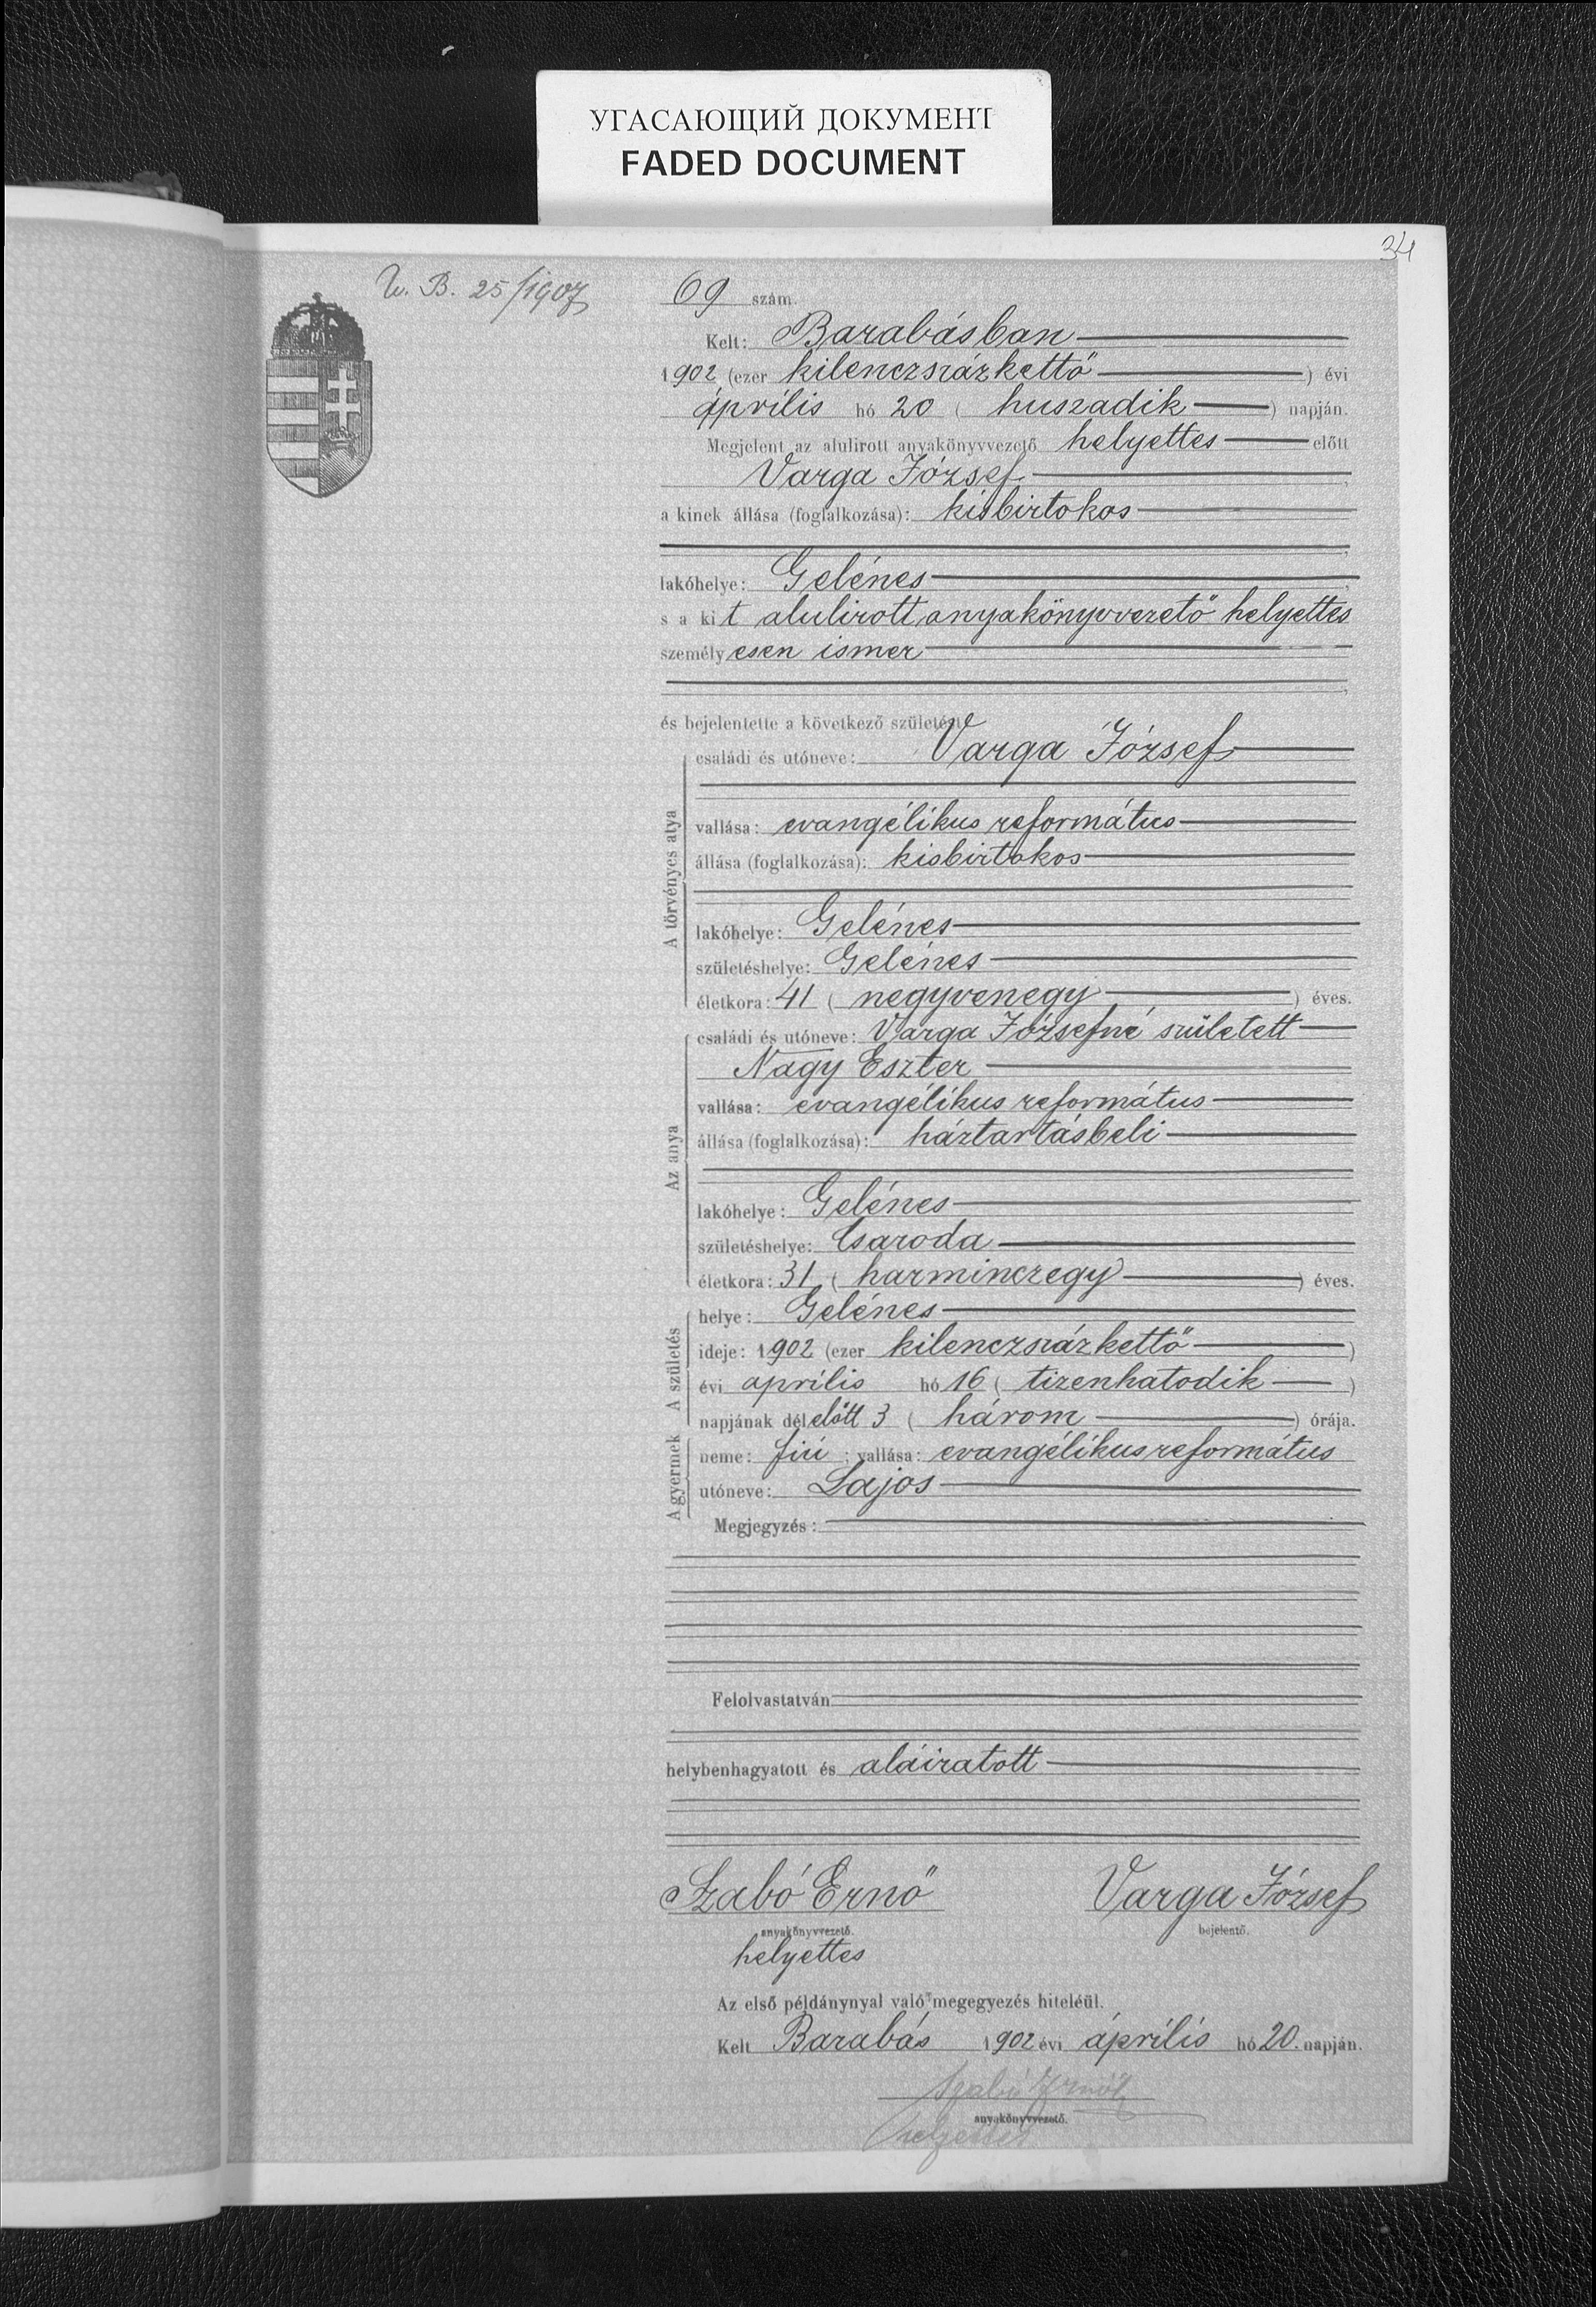 УГАСАЮЩИЙ ДОКУМЕНТ
FADED DOCUMENT
34
U. B. 25/1907
69 szám.
Kelt: Barabásban
1902 (ezer kilenczszázkettő) évi
április hó 20 (huszadik) napján.
Megjelent az alulirott anyakönyvvezető helyettes előtt
Varga József,
a kinek állása (foglalkozása): kisbirtokos
lakóhelye: Gelénes,
s a kit alulirott anyakönyvvezető helyettes
személyesen ismer
és bejelentette a következő születést
A törvényes atya
családi és utóneve: Varga József
vallása: evangélikus református
állása (foglalkozása): kisbirtokos
lakóhelye: Gelénes
születéshelye: Gelénes
életkora: 41 (negyvenegy) éves.
Az anya
családi és utóneve: Varga Józsefné született
Nagy Eszter
vallása: evangélikus református
állása (foglalkozása): háztartásbeli
lakóhelye: Gelénes
születéshelye: Csaroda
életkora: 31 (harminczegy) éves.
A születés
helye: Gelénes
ideje: 1902 (ezer kilenczszázkettő)
évi április hó 16 (tizenhatodik)
napjának délelőtt 3 (három) órája.
A gyermek
neme: fiú; vallása: evangélikus református
utóneve: Lajos
Megjegyzés:
Felolvastatván
helybenhagyatott és aláiratott
Szabó Ernő Varga József
anyakönyvvezető. bejelentő.
helyettes
Az első példánynyal való megegyezés hiteléül.
Kelt Barabás 1902 évi április hó 20. napján.
Szabó Ernő
anyakönyvvezető.
helyettes